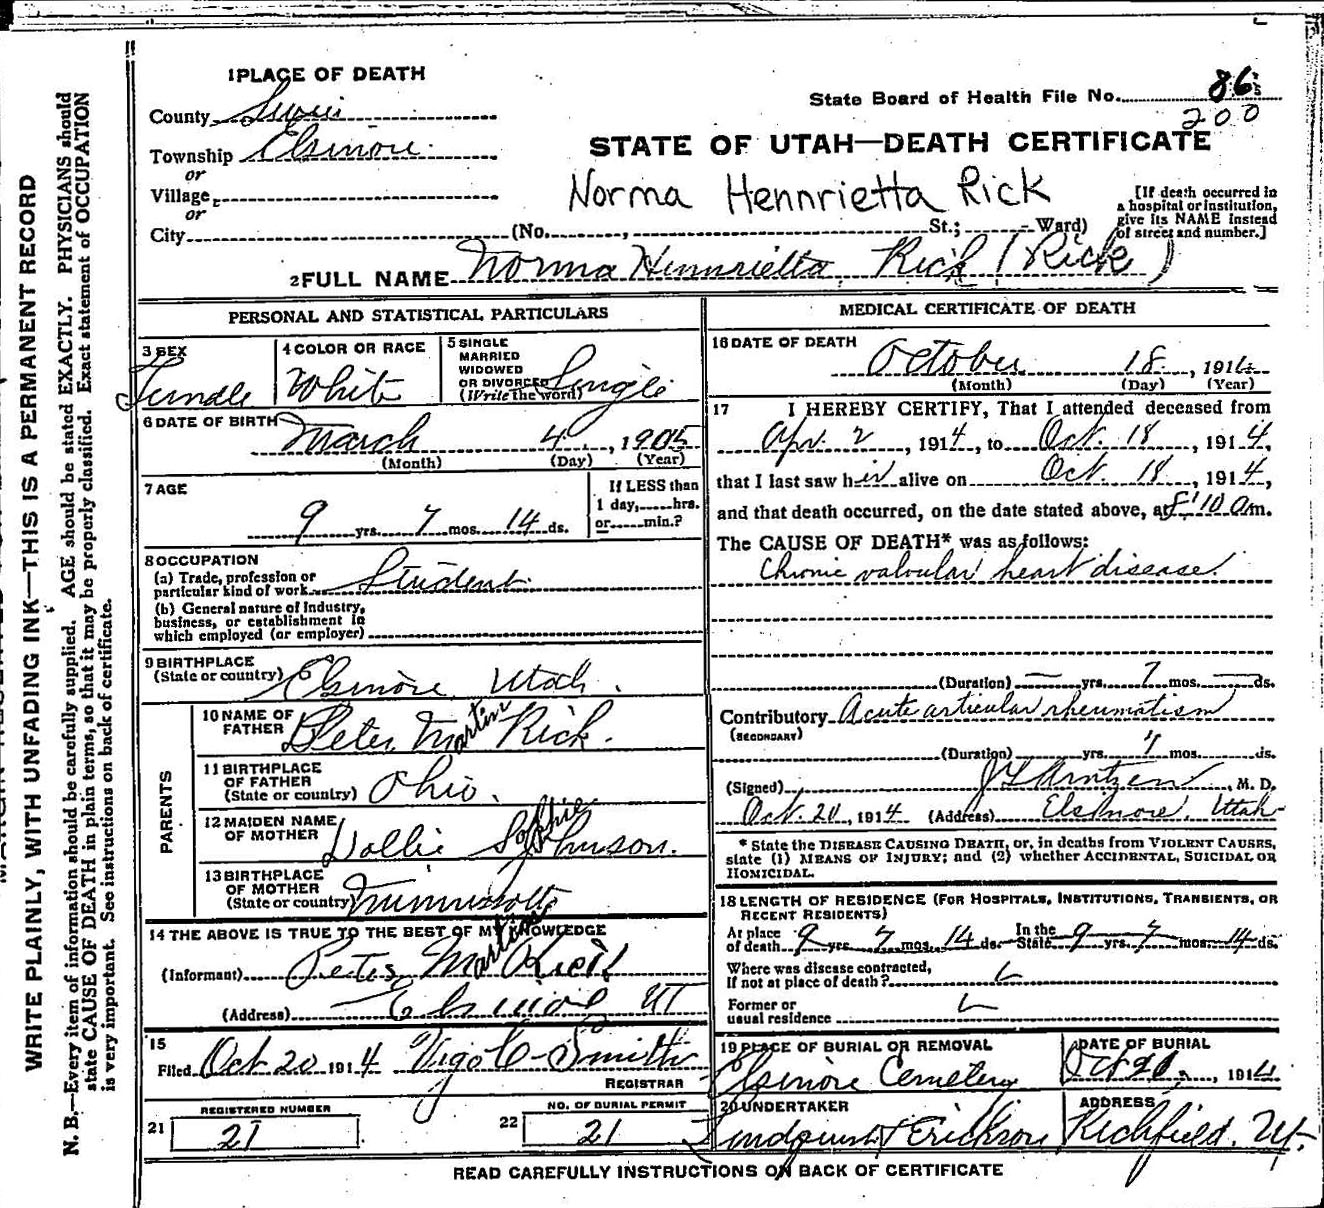 1 PLACE OF DEATH
County Sevier
Township Elsinore
or
Village
or
City (No. , St.; Ward)
State Board of Health File No. 86
200
STATE OF UTAH—DEATH CERTIFICATE
Norma Hennrietta Rick
[If death occurred in
a hospital or institution,
give its NAME instead
of street and number.]
2 FULL NAME Norma Hennrietta Rick (Rick)
PERSONAL AND STATISTICAL PARTICULARS
3 SEX
Female
4 COLOR OR RACE
White
5 SINGLE
MARRIED
WIDOWED
OR DIVORCED
(Write the word) Single
6 DATE OF BIRTH
March 4, 1905
(Month) (Day) (Year)
7 AGE
9 yrs. 7 mos. 14 ds.
If LESS than
1 day, hrs.
or min.?
8 OCCUPATION
(a) Trade, profession or
particular kind of work Student
(b) General nature of industry,
business, or establishment in
which employed (or employer)
9 BIRTHPLACE
(State or country) Elsinore, Utah.
PARENTS
10 NAME OF
FATHER Peter Martin Rick.
11 BIRTHPLACE
OF FATHER
(State or country) Ohio.
12 MAIDEN NAME
OF MOTHER Dollie Sophie Johnson.
13 BIRTHPLACE
OF MOTHER
(State or country)
14 THE ABOVE IS TRUE TO THE BEST OF MY KNOWLEDGE
(Informant) Peter Martin Rick
(Address) Elsinore UT
15
Filed Oct 20 1914 Vigo C Smith
REGISTRAR
21 REGISTERED NUMBER
21
22 NO. OF BURIAL PERMIT
21
MEDICAL CERTIFICATE OF DEATH
16 DATE OF DEATH
October 18, 1914
(Month) (Day) (Year)
17 I HEREBY CERTIFY, That I attended deceased from
Apr. 2, 1914, to Oct. 18, 1914,
that I last saw her alive on Oct. 18, 1914,
and that death occurred, on the date stated above, at 10 am.
The CAUSE OF DEATH* was as follows:
Chronic valvular heart disease.
(Duration) yrs. 7 mos. ds.
Contributory Acute articular rheumatism
(SECONDARY)
(Duration) yrs. 7 mos. ds.
(Signed) Arntzen, M. D.
Oct. 20, 1914 (Address) Elsinore, Utah
* State the DISEASE CAUSING DEATH, or, in deaths from VIOLENT CAUSES,
state (1) MEANS OF INJURY; and (2) whether ACCIDENTAL, SUICIDAL OR
HOMICIDAL.
18 LENGTH OF RESIDENCE (FOR HOSPITALS, INSTITUTIONS, TRANSIENTS, OR
RECENT RESIDENTS)
At place In the
of death 9 yrs. 7 mos. 14 ds. State 9 yrs. 7 mos. 14 ds.
Where was disease contracted,
If not at place of death?
Former or
usual residence
19 PLACE OF BURIAL OR REMOVAL
Elsinore Cemetery
DATE OF BURIAL
Oct 20, 1914
20 UNDERTAKER
Lindquist & Erickson
ADDRESS
Richfield. Ut.
READ CAREFULLY INSTRUCTIONS ON BACK OF CERTIFICATE
WRITE PLAINLY, WITH UNFADING INK—THIS IS A PERMANENT RECORD
N. B.—Every item of information should be carefully supplied. AGE should be stated EXACTLY. PHYSICIANS should
state CAUSE OF DEATH in plain terms, so that it may be properly classified. Exact statement of OCCUPATION
is very important. See instructions on back of certificate.